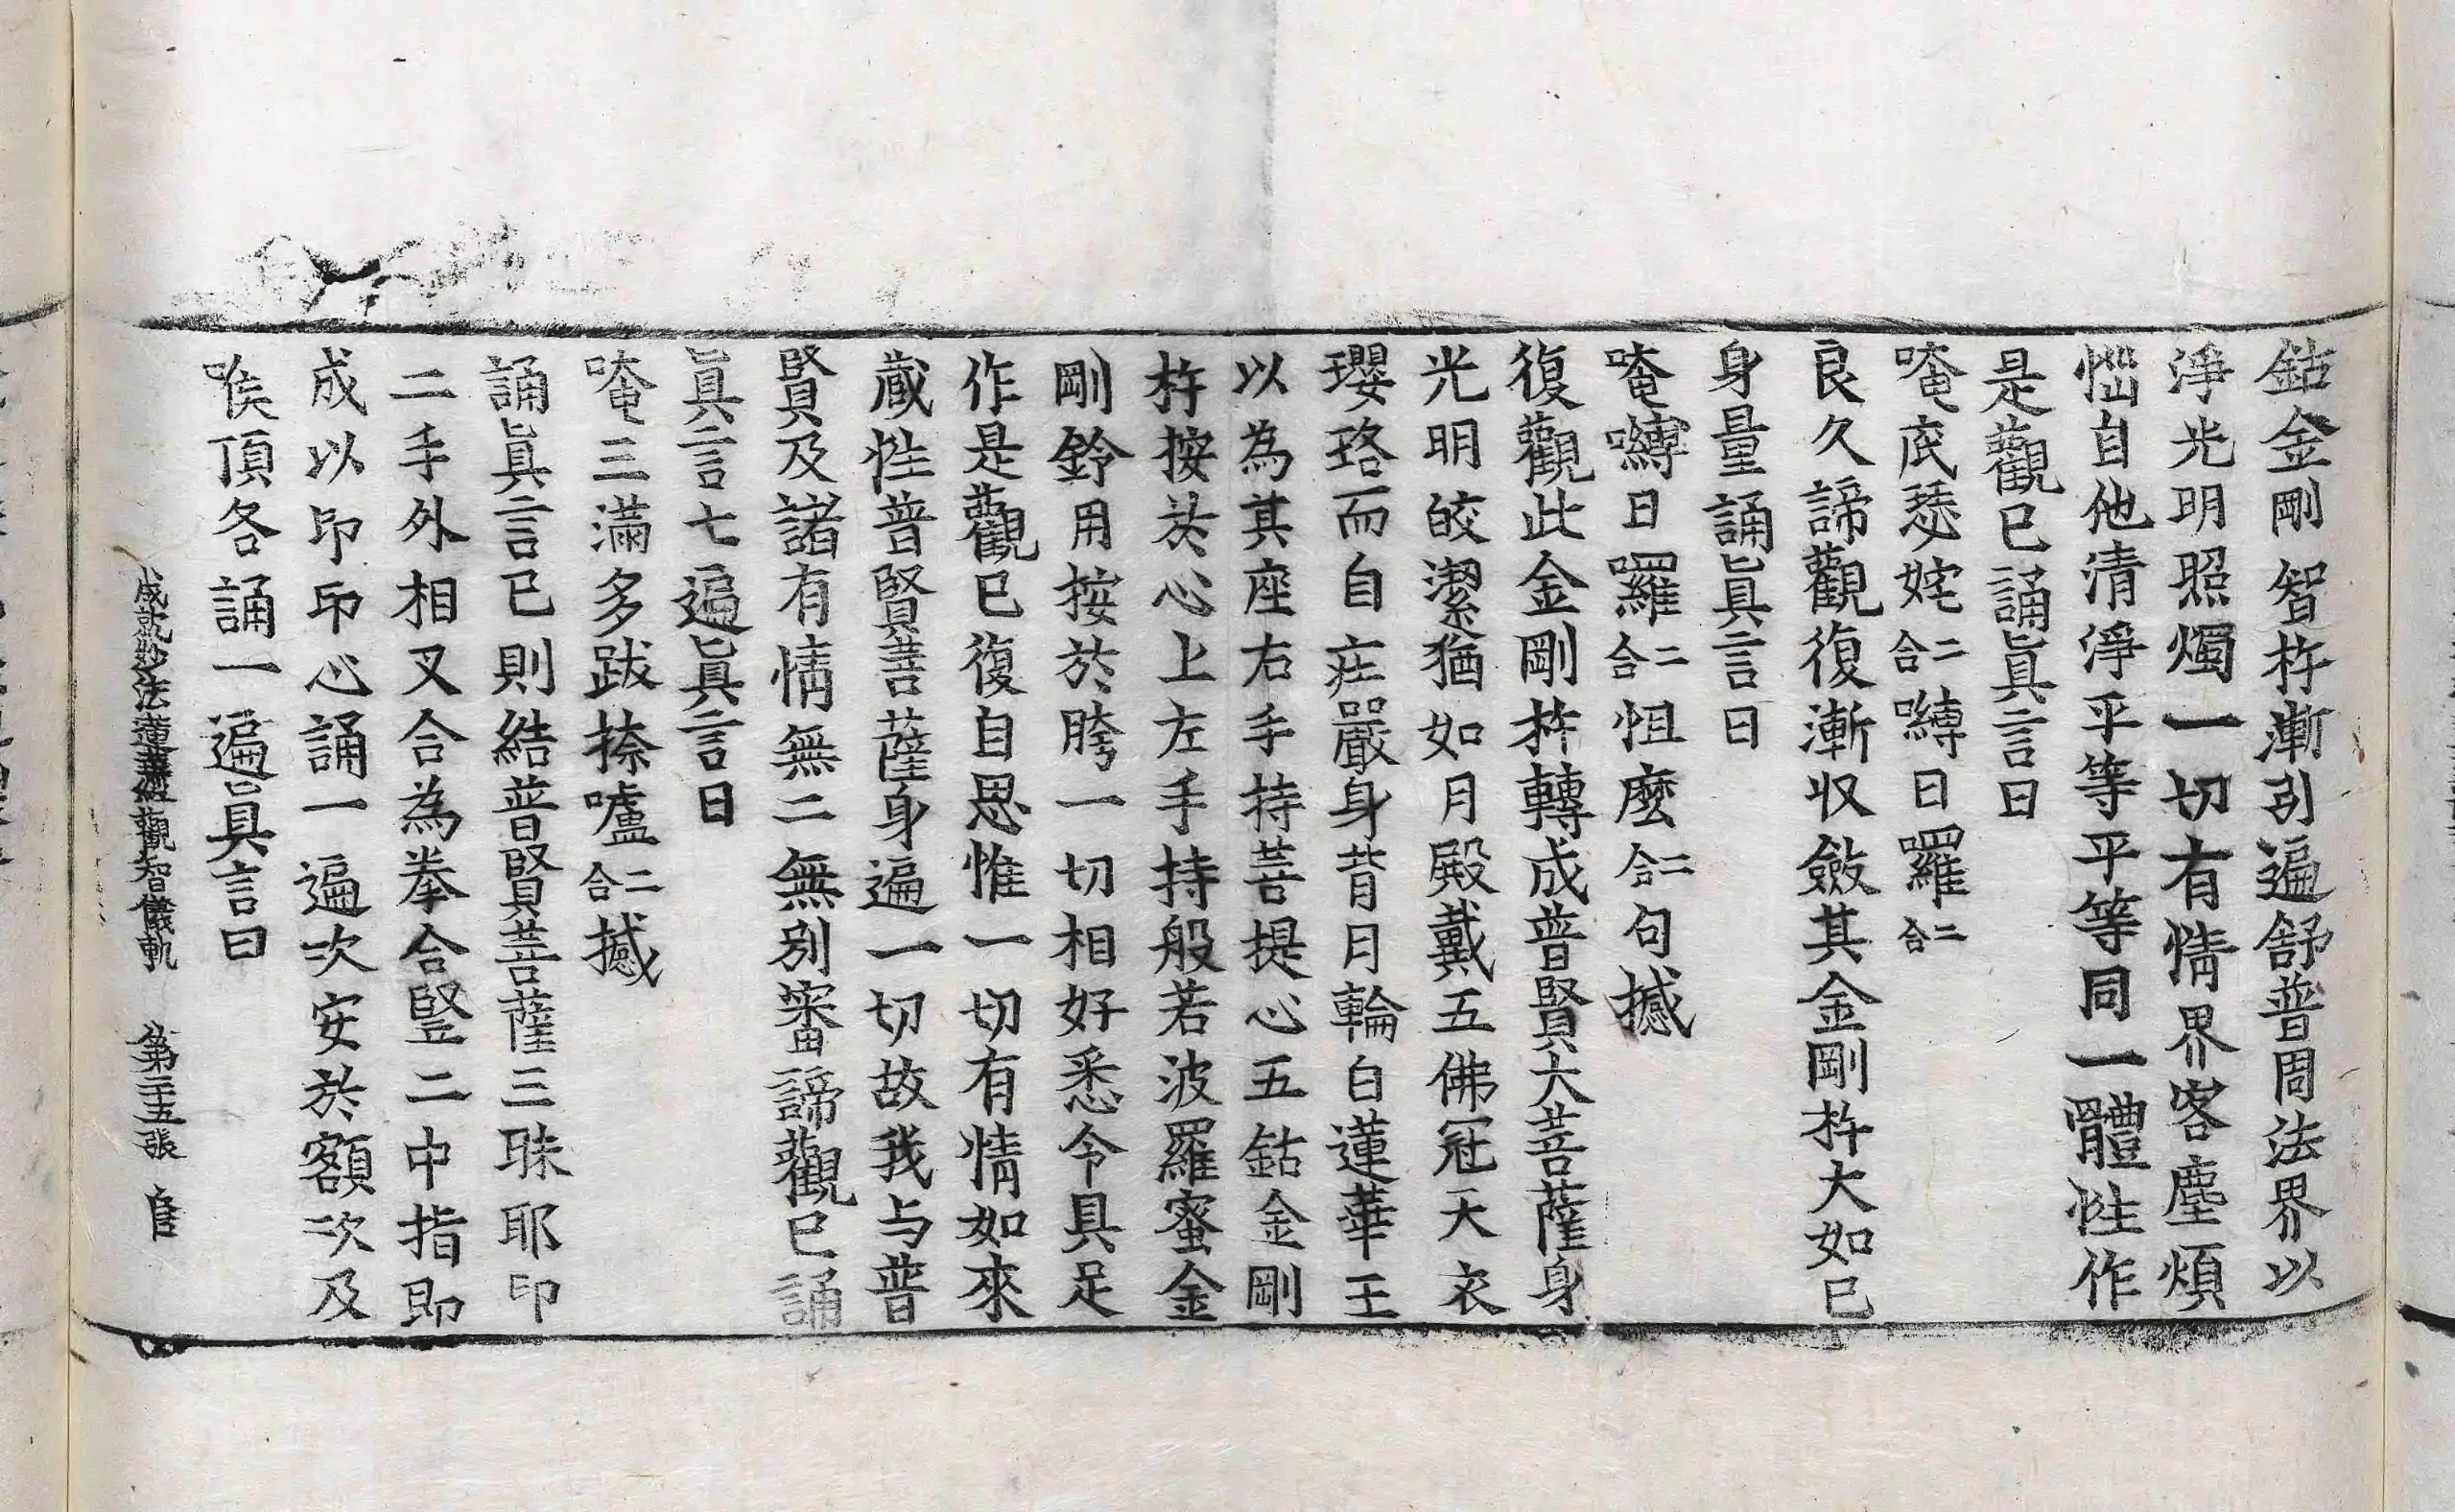 鈷金剛智杵漸引遍舒普周法界以
淨光明照燭一切有情界客塵煩
惱自他清淨平等平等同一體性作
是觀已誦眞言曰
唵底瑟姹二合嚩日羅二合
良久諦觀復漸収斂其金剛杵大如已
身量誦眞言曰
唵嚩日羅二合怛麽二合句撼
復觀此金剛杵轉成普賢大菩薩身
光明皎潔猶如月殿戴五佛冠天衣
瓔珞而自庄嚴身背月輪白蓮華王
以為其座右手持菩提心五鈷金剛
杵按於心上左手持般若波羅蜜金
剛鈴用按於胯一切相好悉令具足
作是觀已復自思惟一切有情如來
蔵性普賢菩薩身遍一切故我与普
賢及諸有情無二無別審諦觀已誦
眞言七遍眞言曰
唵三滿多跋捺嚧二合撼
誦眞言已則結普賢菩薩三昧耶印
二手外相叉合為拳合豎二中指即
成以印印心誦一遍次安於額次及
喉頂各誦一遍眞言曰
成就妙法蓮華經觀智儀軌　第二十五張